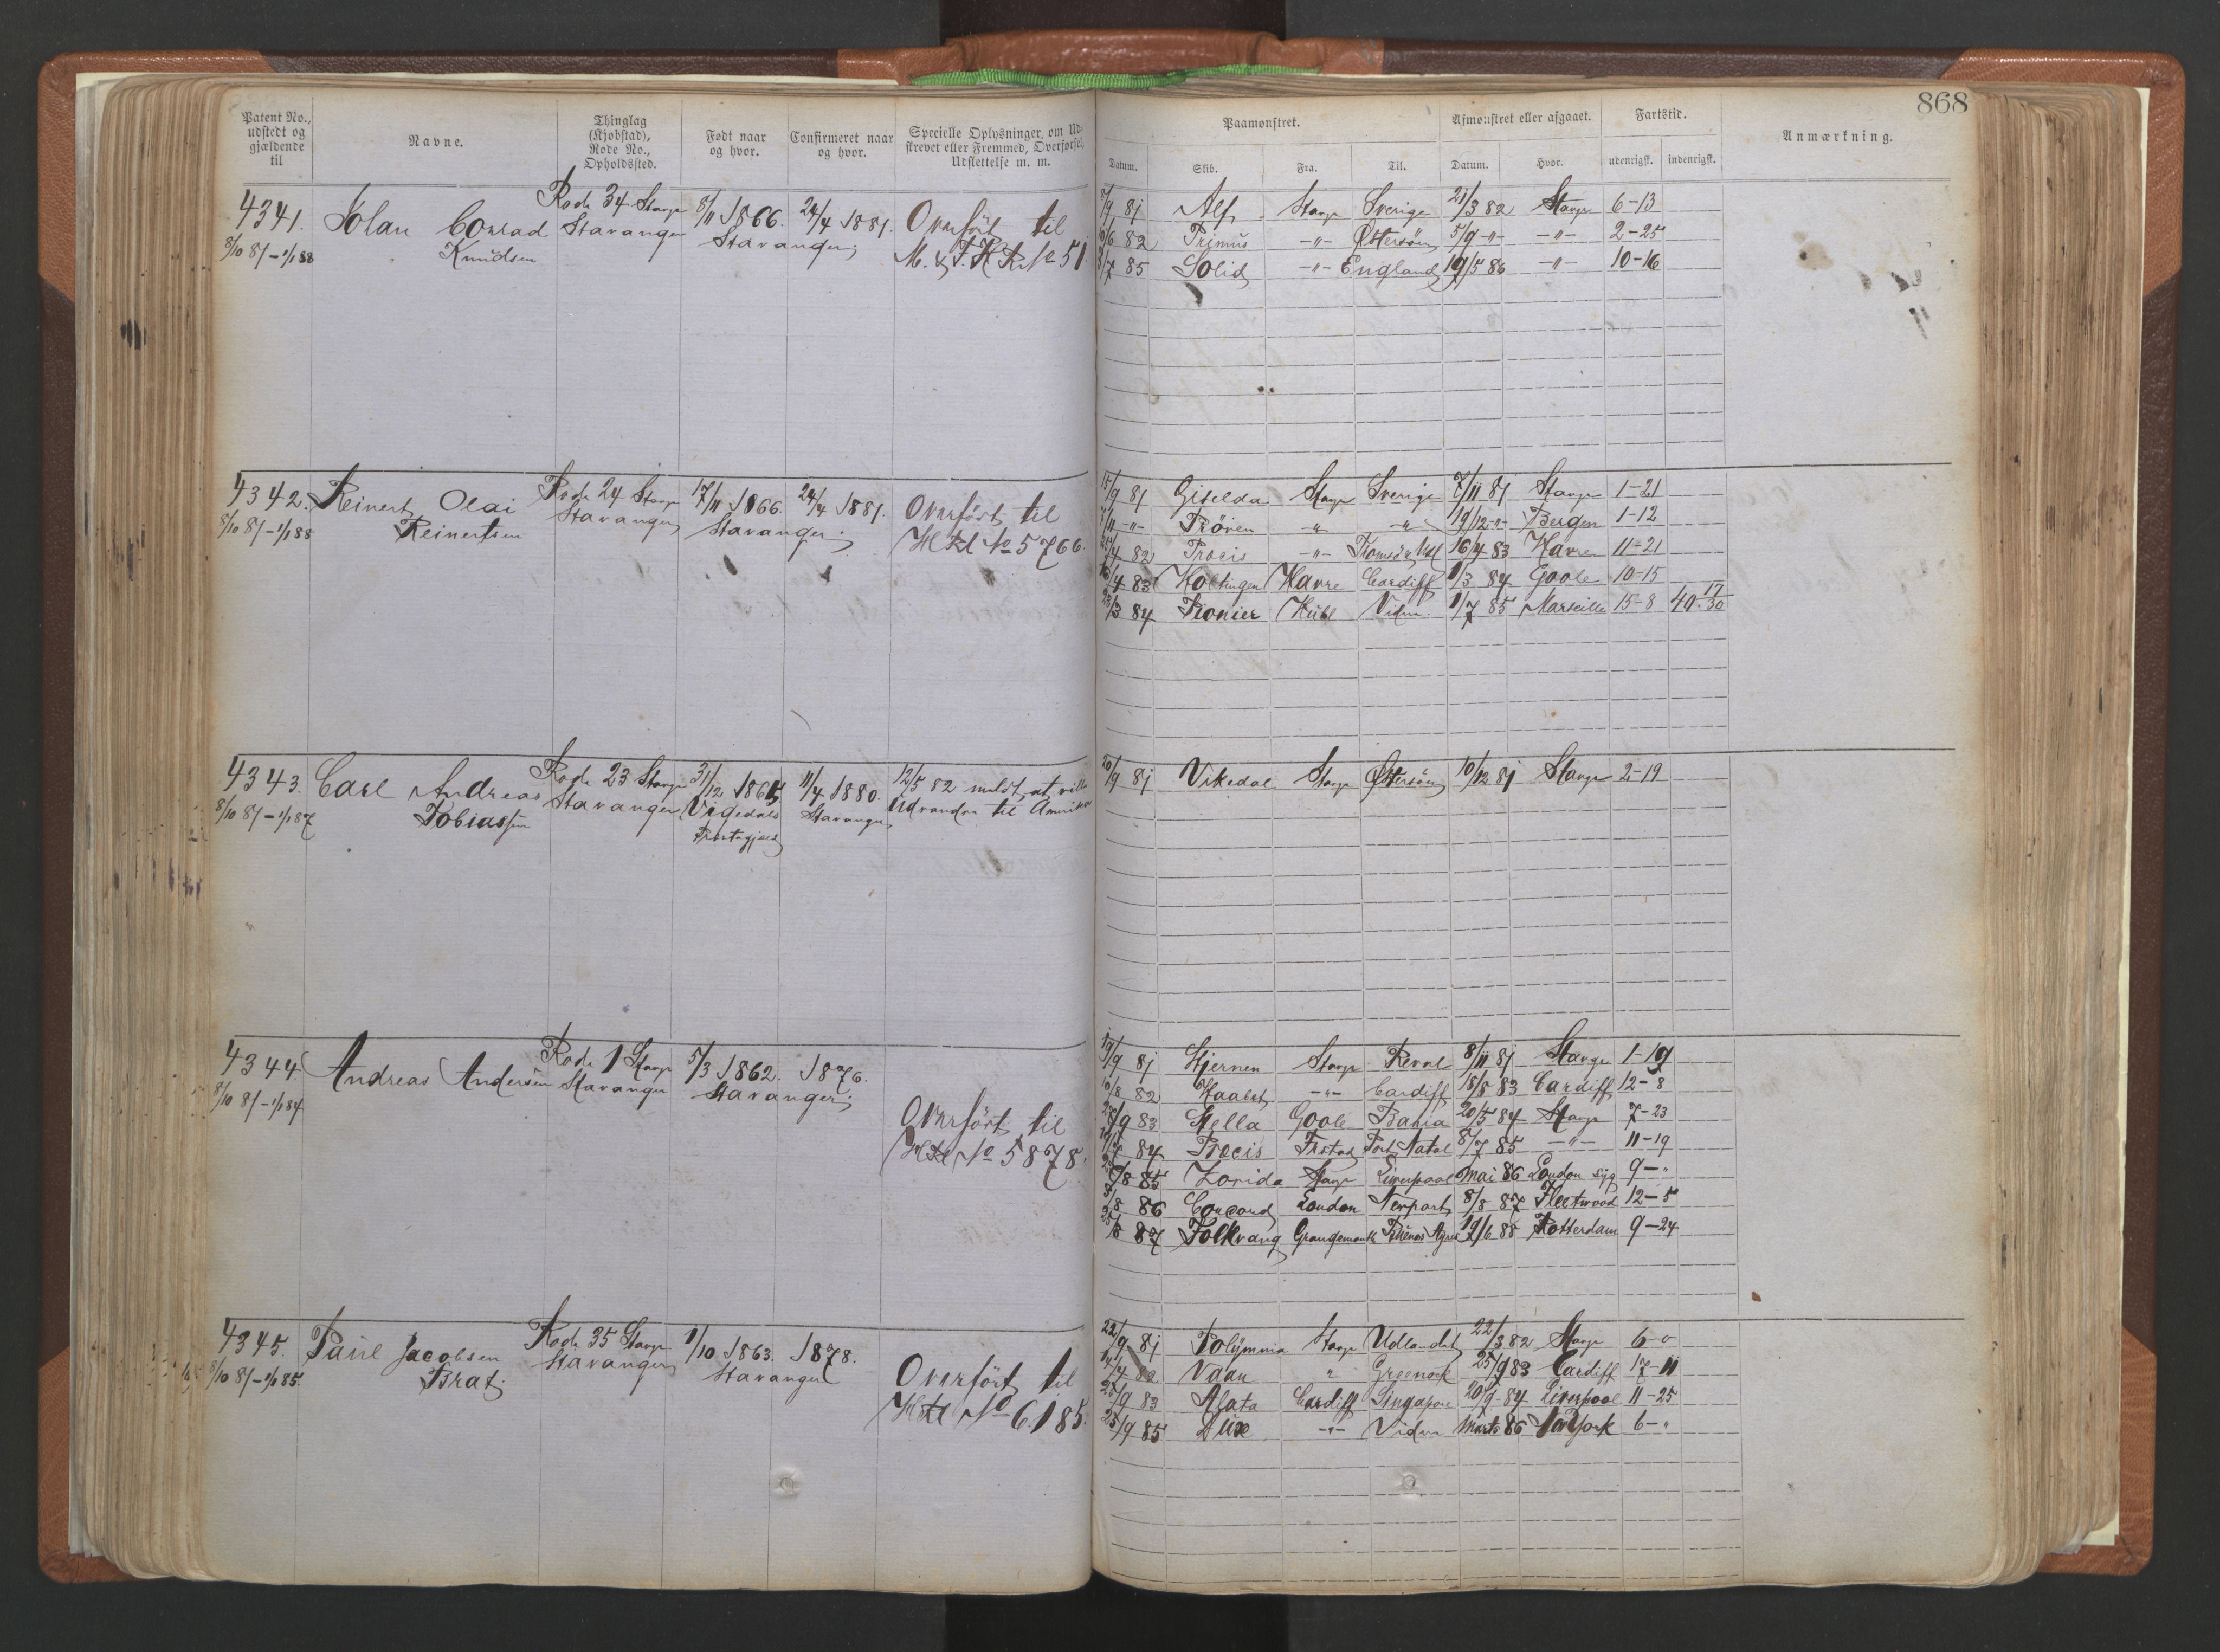 868
Patent No., udstedt og gjældende til
Navne.
Thinglag (Kjøbstad), Rode No., Opholdssted.
Født naar og hvor.
Confirmeret naar og hvor.
Specielle Oplysninger, om Udskrevet eller Fremmed, Overførsel, Udslettelse m. m.
Paamønstret.
Afmønstret eller afgaaet.
Fartstid.
Anmærkning.
Datum. Skib. Fra. Til. Datum. Hvor. udenrigsk. indenrigsk.
4341. Conrad Rode 34 Stavgr 8/11 1866. 24/4 1881. Overført til
8/10 81 - 1/1 88 Knudsen Stavanger Stavanger No 51
/9 81 Alf Stavgr Sverige 21/3 82 Stavgr 6-13
/6 82 Primus -"- Østersøen 5/9 -"- -"- 2-25
/7 85 Solid -"- England 19/5 86 -"- 10-16
4342. Reinert Olai Rode 24 Stavgr 17/11 1866. 24/4 1881. Overført til
8/10 81 - 1/1 88 Reinertsen Stavanger Stavanger No 5766.
15/9 81 Giselda Stavgr Sverige 7/11 81 Stavgr 1-21
/11 -"- Prøven -"- -"- 19/12 -"- Bergen 1-12
/4 82 Procis -"- 16/4 83 Havre 11-21
16/4 83 Havre Cardiff 1/3 84 Goole 10-15
/3 84 Hull Vidre 1/7 85 Marseille 15-8 40. 17/30
4343. Carl Andreas Rode 23 Stavgr 31/12 1865 11/4 1880. 12/5 82 meldt at ville
8/10 81 - 1/1 87 Tobiassen Stavanger Vigedals Præstegjeld Stavanger Udvandre til Amerika
20/9 81 Vikedal Stavgr Østersøen 10/12 81 Stavgr 2-19
4344. Andreas Andersen Rode 1 Stavgr 5/3 1862. 1876.
8/10 81 - 1/1 84 Stavanger Stavanger
Overført til
No 5878.
19/9 81 Hjernen Stavgr Reval 8/11 81 Stavgr 1-19
/8 82 -"- Cardiff 18/8 83 Cardiff 12-8
/9 83 Stella Goole Bahia 20/5 84 Stavgr 7-23
84 Procis Port Natal 8/7 85 -"- 11-19
/8 85 Zorida Stavgr Liverpool Mai 86 London syg 9-"
/8 86 Concord London Newport 8/8 87 Fleetwood 12-5
/8 87 Folkvang Grangemouth Buenos Ayres 19/6 88 Rotterdam 9-24
4345. Paul Jacobsen Rode 35 Stavgr 1/10 1863. 1878.
8/10 81 - 1/1 85. Brat Stavanger Stavanger
Overført til
No 6185.
22/9 81 Polymnia Stavgr Udlandet 22/3 82 Stavgr 6-0
/4 82 " Greenock 25/9 83 Cardiff 17-11
25/9 83 Agata Cardiff Singapore 20/9 84 Liverpool 11-25
25/9 85 Dux -"- Vidre Marts 86 New York 6-"